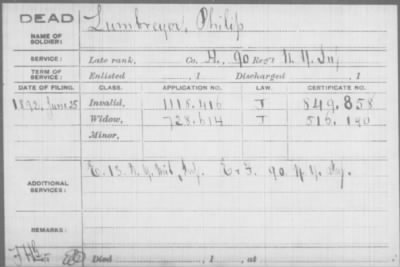 DEAD
NAME OF SOLDIER:
Lumbreyer, Philip
SERVICE:
Late rank, Co. H, 90 Reg't N. Y. Inf
TERM OF SERVICE:
Enlisted , 1 Discharged , 1
DATE OF FILING. CLASS. APPLICATION NO. LAW. CERTIFICATE NO.
1892, June 25 Invalid, 1118.416 J 849.858
Widow, 728.614 J 516.190
Minor,
ADDITIONAL SERVICES:
E. 13. N. Y. Mil. Inf. E & F. 90 N. Y. Inf.
REMARKS:
Died , 1 , at